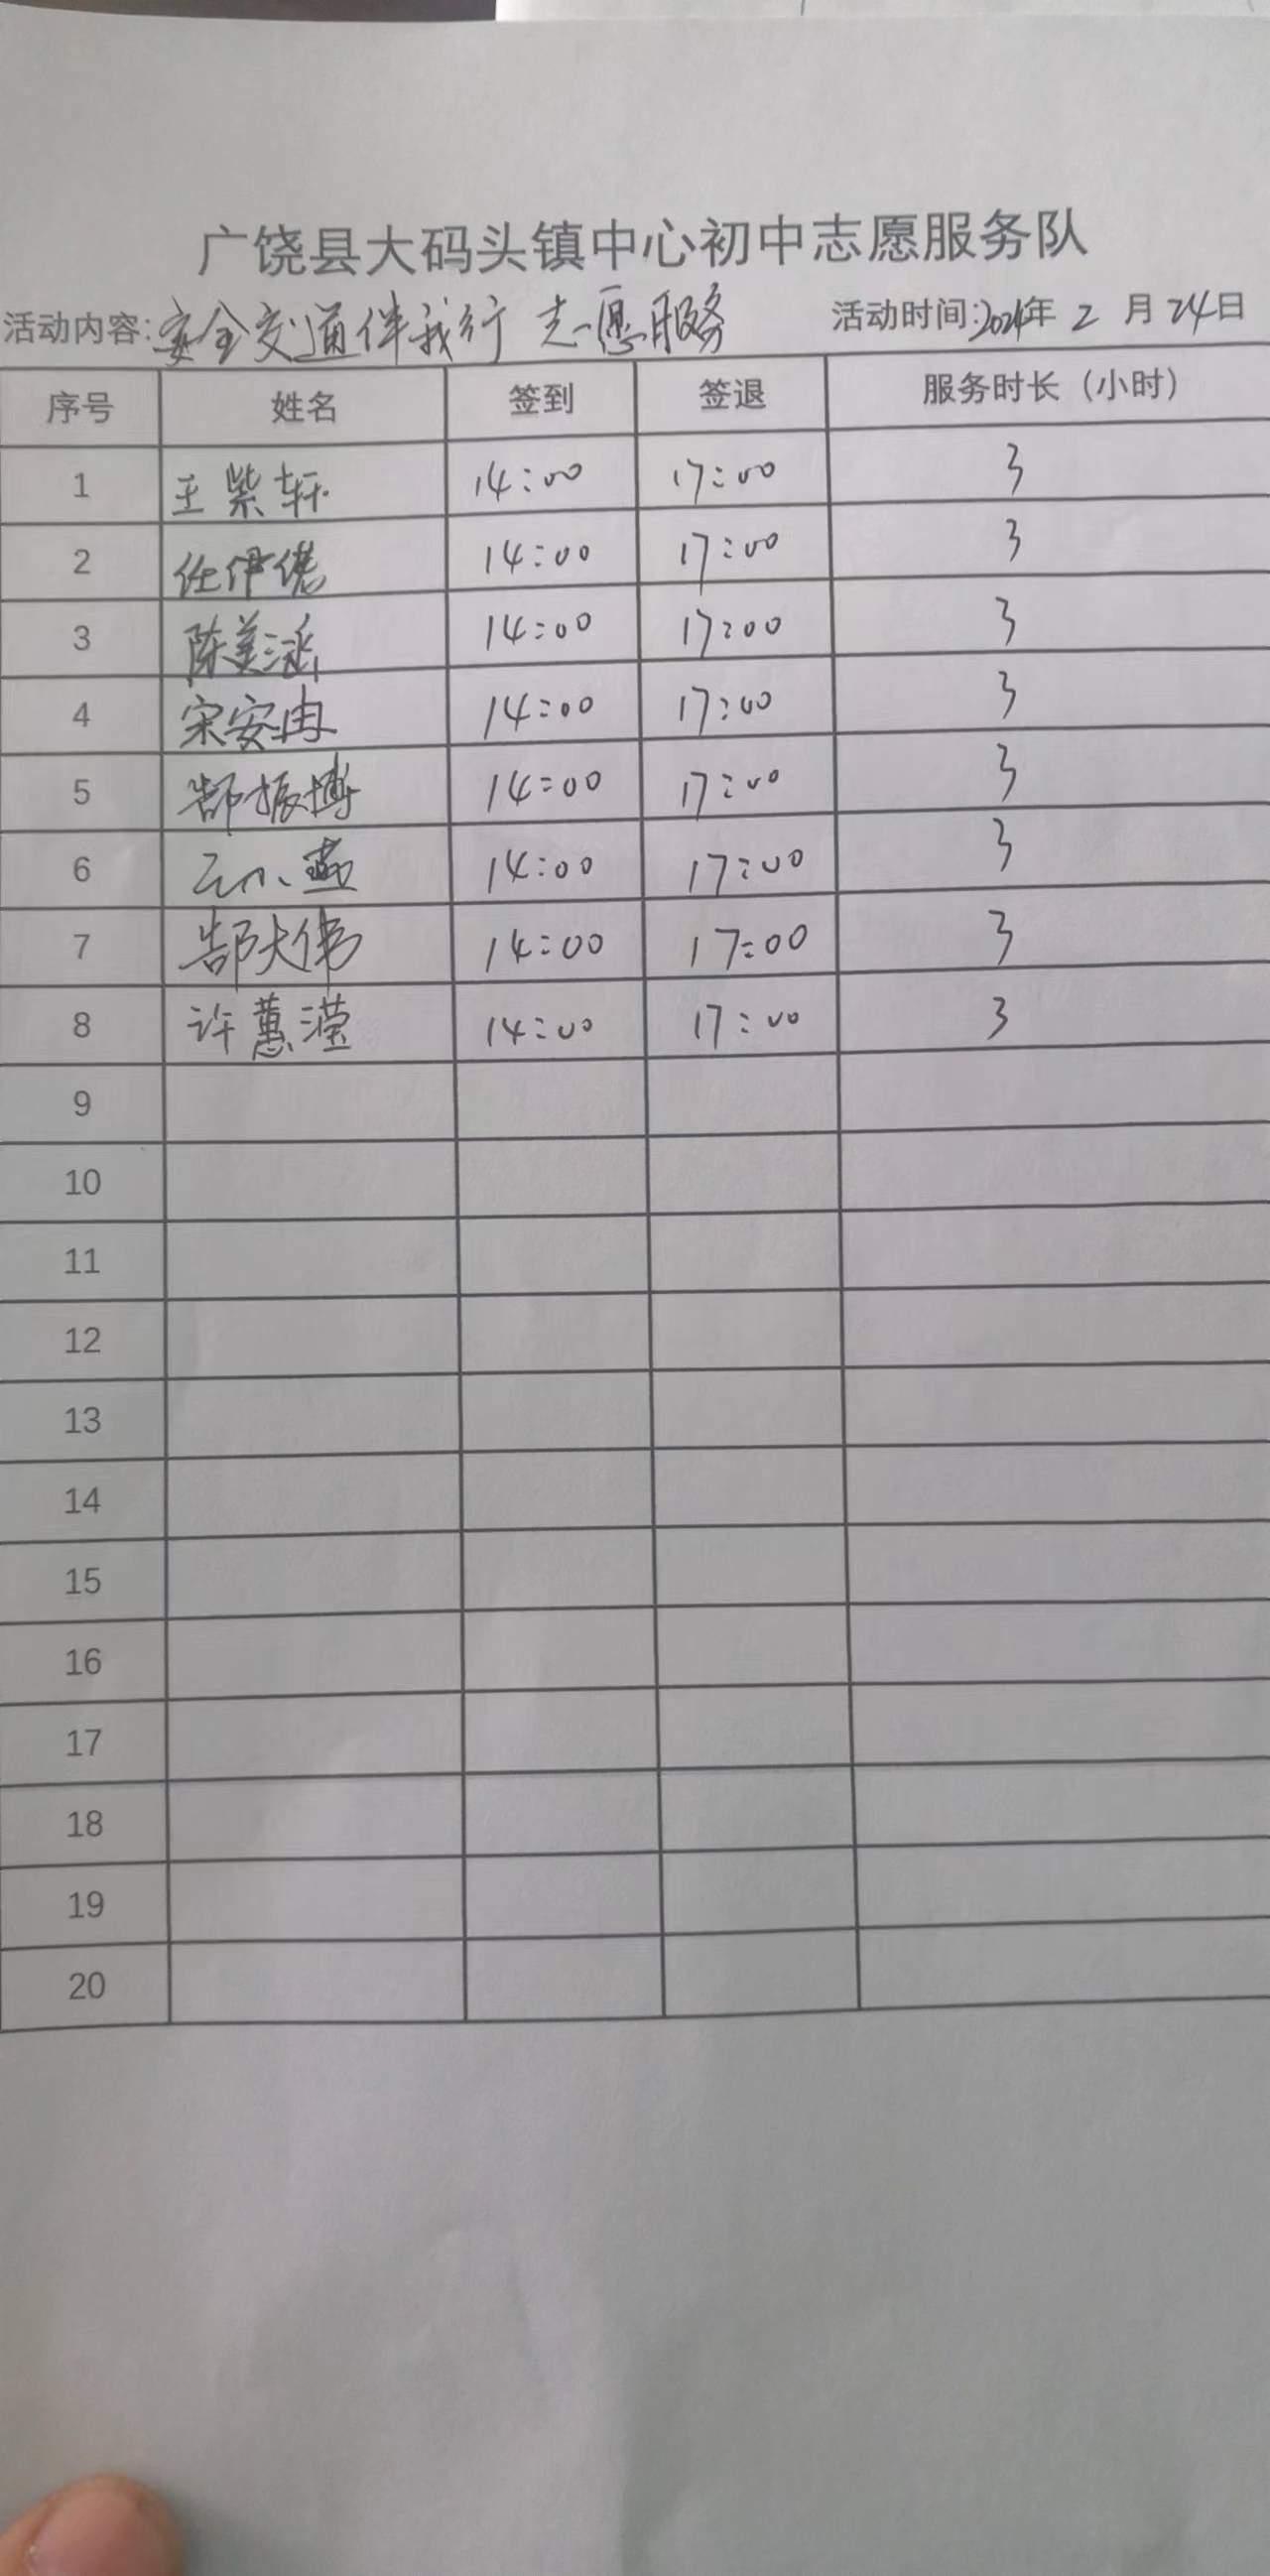 广饶县大码头镇中心初中志愿服务队
活动内容:安全交通伴我行 志愿服务 活动时间:2024年 2 月 24日
序号 姓名 签到 签退 服务时长（小时）
1 王紫轩 14:00 17:00 3
2 任伊偌 14:00 17:00 3
3 陈美涵 14:00 17:00 3
4 宋安冉 14:00 17:00 3
5 郜振博 14:00 17:00 3
6 14:00 17:00 3
7 郜大伟 14:00 17:00 3
8 许蕙滢 14:00 17:00 3
9
10
11
12
13
14
15
16
17
18
19
20